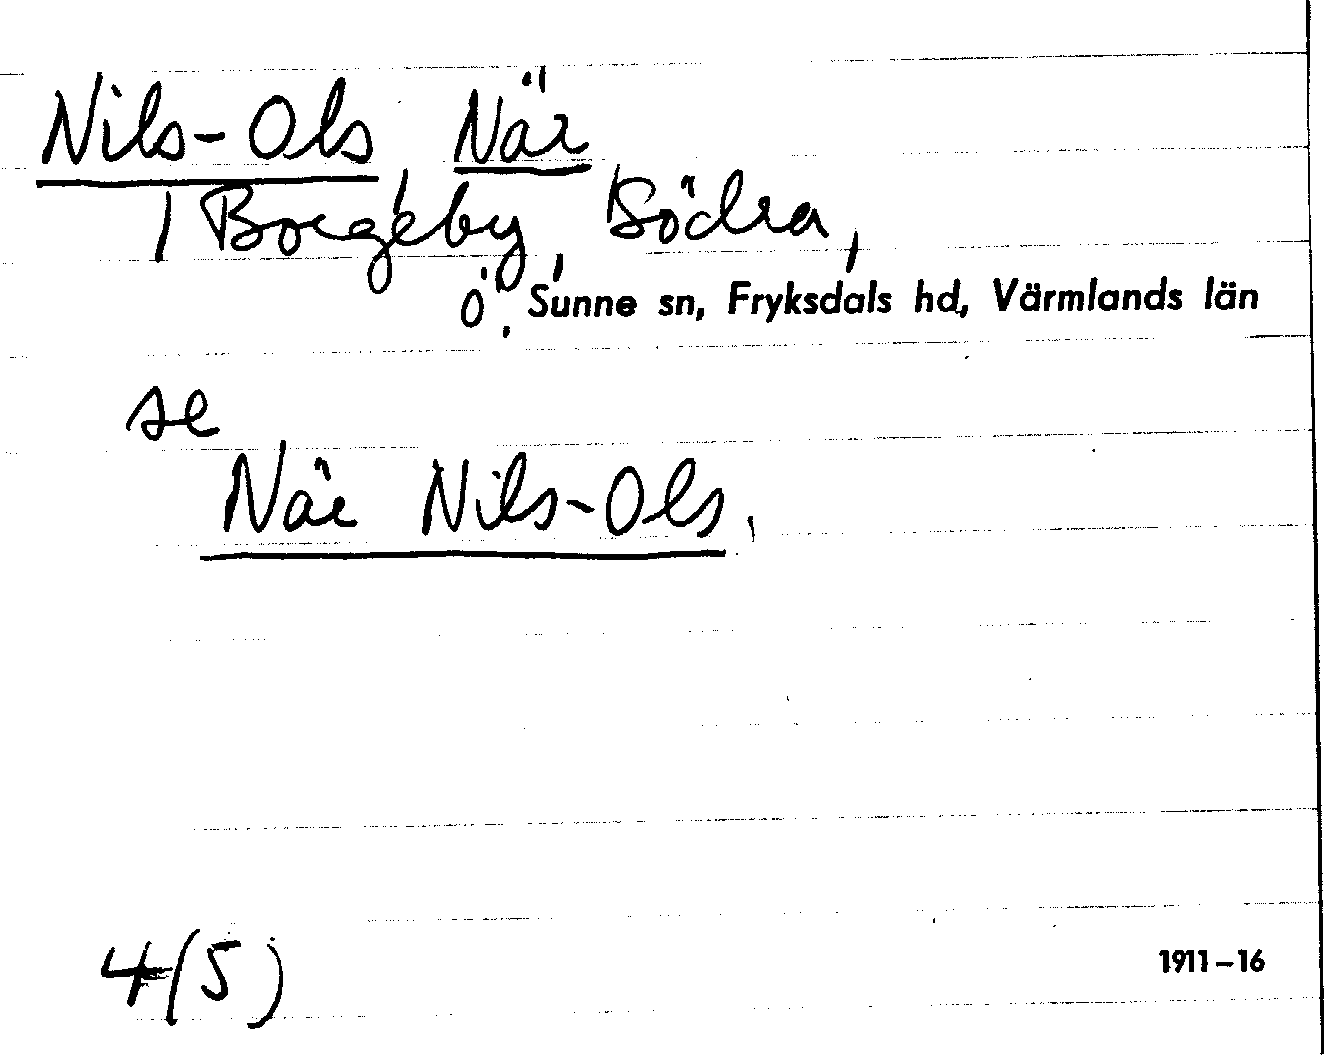 Nils-Ols När
Borgeby, Södra,
Ö. Sunne sn, Fryksdals hd, Värmlands län
se
När Nils-Ols.
4(5)
1911-16